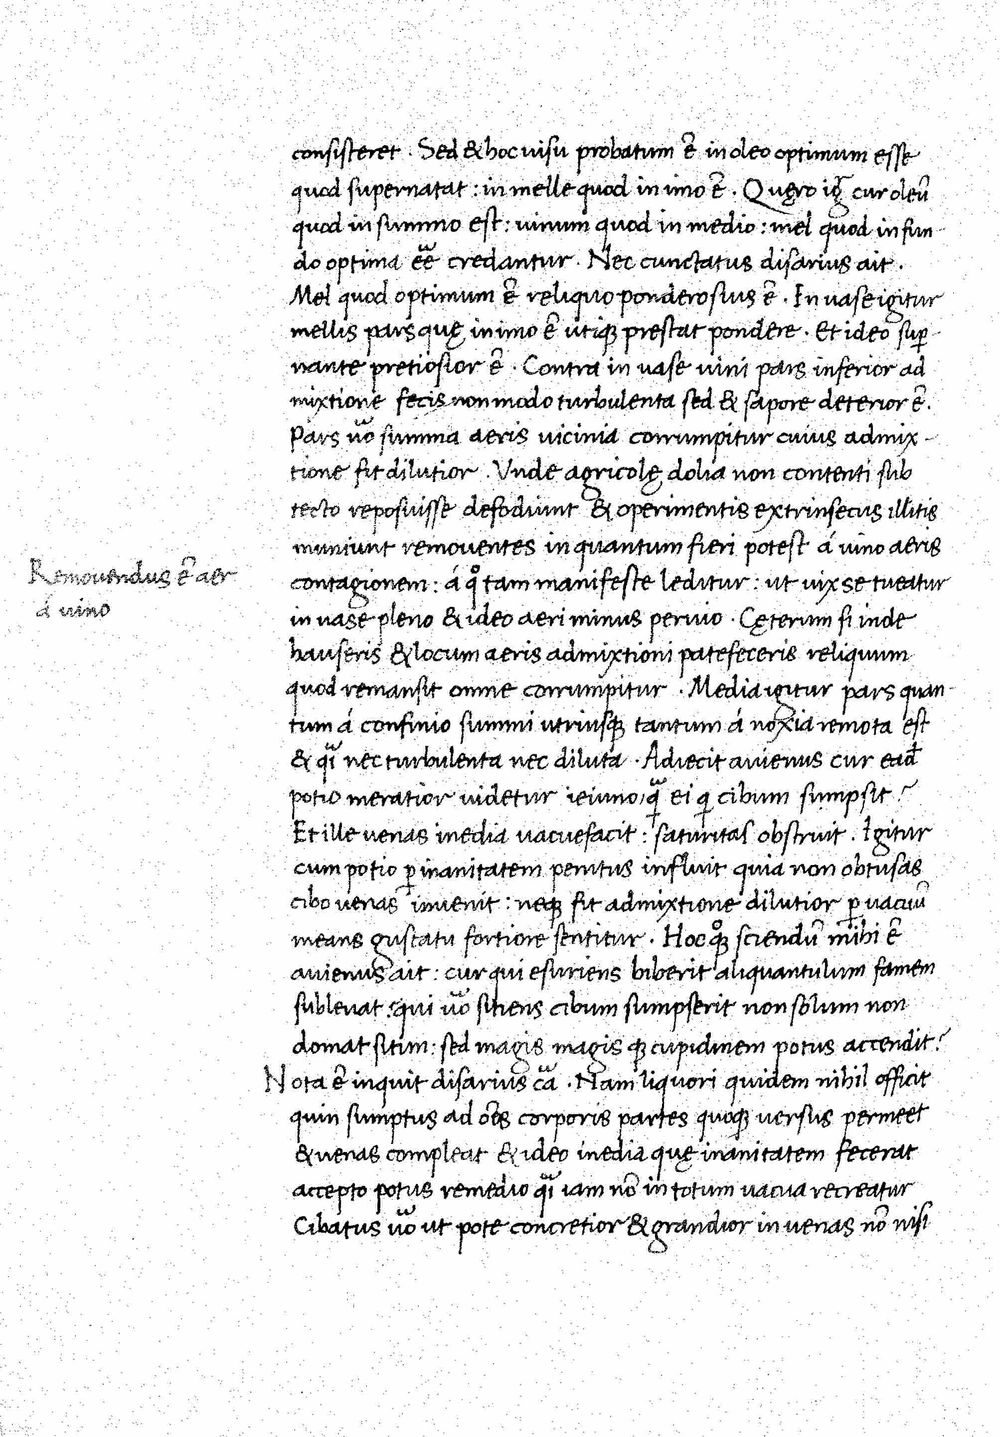 consisteret . Sed & hoc uisu probatum ē in oleo optimum esse
quod supernatat : in melle quod in imo ē . Quęro igr̃ cur oleũ
quod in summo est : uinum quod in medio : mel quod in fun-
do optima eẽ credantur . Nec cunctatus disarius ait .
Mel quod optimum ē reliquo ponderosius ē . In uase igitur
mellis pars quę in imo ē utiqꝫ prestat pondere . Et ideo suꝑ-
nante pretiosior ē . Contra in uase uini pars inferior ad
mixtione fecis non modo turbulenta sed & sapore deterior ē .
Pars ũo summa aeris uicinia corrumpitur cuius admix-
tione fit dilutior . Vnde agricolę dolia non contenti sub
tecto reposuisse defodiunt & operimentis extrinsecus illitis
muniunt remouentes in quantum fieri potest á uino aeris
Remouendus ē aer
á uino
contagionem : á qͦ tam manifeste leditur : ut uix se tueatur
in uase pleno & ideo aeri minus peruio . Cęterum si inde
hauseris & locum aeris admixtioni patefeceris reliquum
quod remansit omne corrumpitur . Media igitur pars quan-
tum á confinio summi utriusqꝫ tantum á noxia remota est
& qã nec turbulenta nec diluta . Adiecit auienus cur eađ
potio meratior uidetur ieiuno, ꝗ̃ ei ꝗ cibum sumpsit ?
Et ille uenas inedia uacuefacit : saturitas obstruit . Igitur
cum potio ꝑ inanitatem penitus influit quia non obtusas
cibo uenas inuenit : neqꝫ fit admixtione dilutior ꝑ uacuũ
means gustatu fortiore sentitur . Hoc qͦqꝫ sciendũ mihi ē
auienus ait : cur qui esuriens biberit aliquantulum famem
subleuat : qui ũo sitiens cibum sumpserit non solum non
domat sitim : sed magis magisqꝫ cupidinem potus accendit ?
Nota ē inquit disarius cã . Nam liquori quidem nihil officit
quin sumptus ad oẽs corporis partes quoqꝫ uersus permeet
& uenas compleat & ideo inedia quę inanitatem fecerat
accepto potus remedio qã iam nõ in totum uacua recreatur
Cibatus ũo ut pote concretior & grandior in uenas nõ nisi